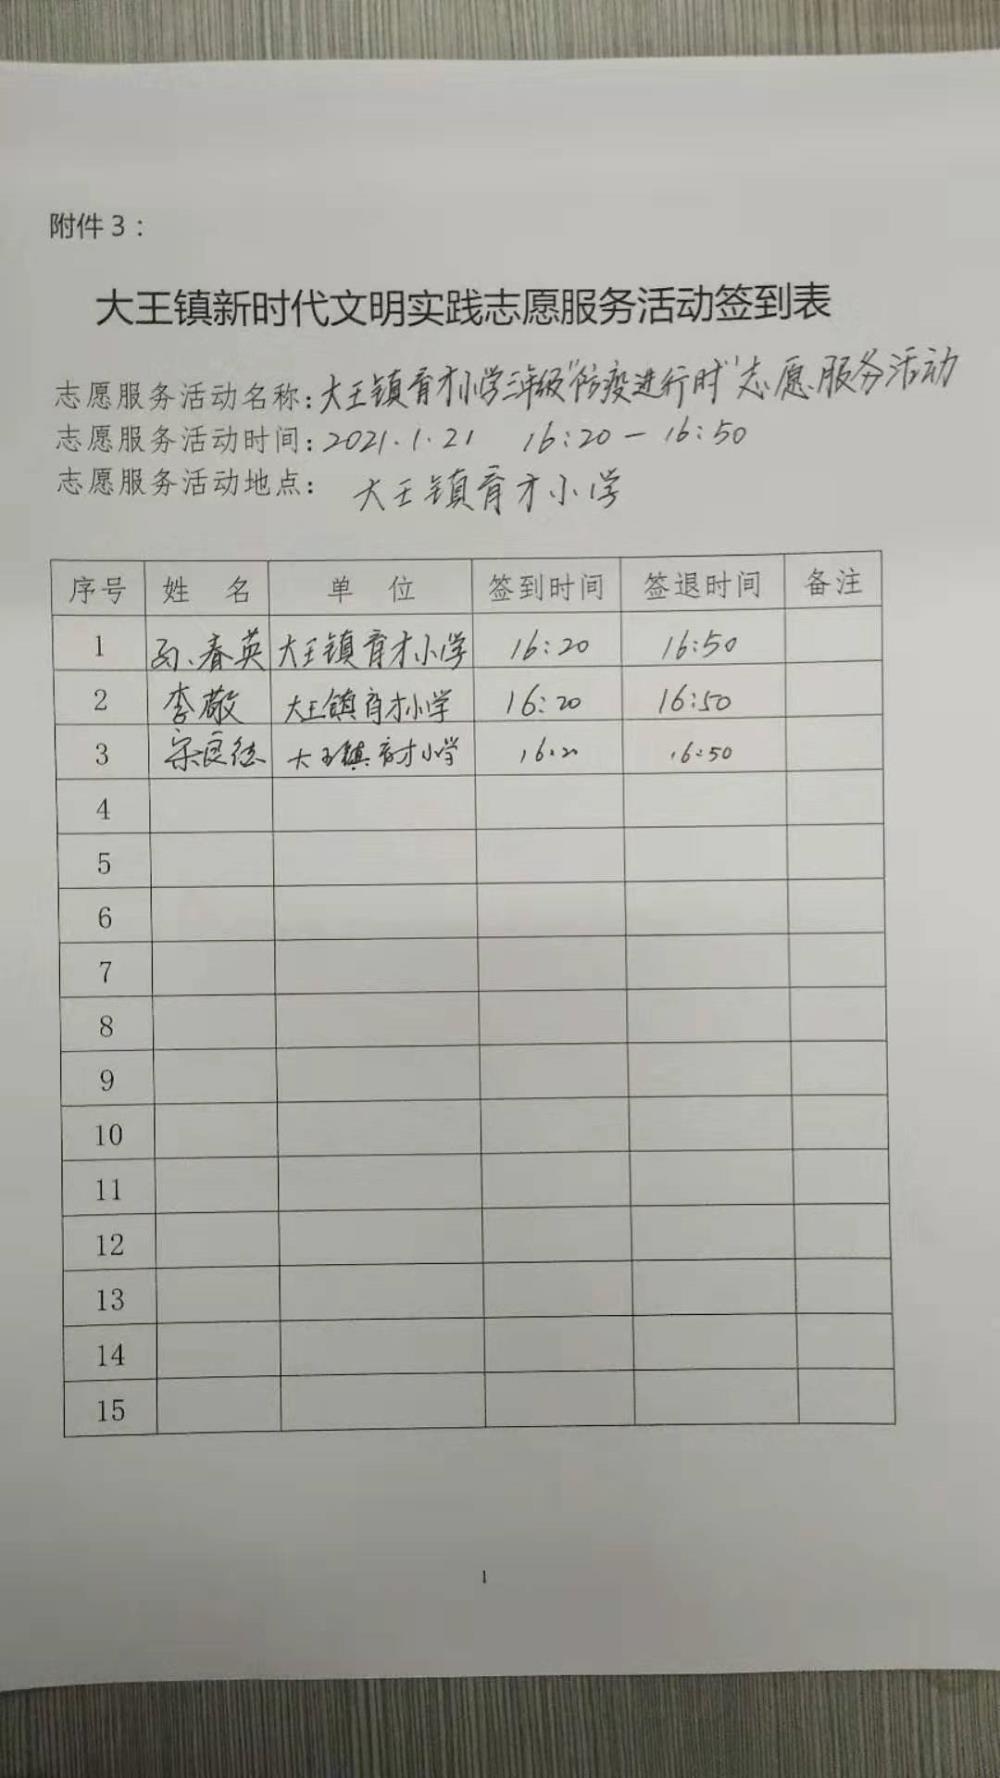 附件3：
大王镇新时代文明实践志愿服务活动签到表
志愿服务活动名称：大王镇育才小学三年级"防疫进行时"志愿服务活动
志愿服务活动时间：2021.1.21 16:20-16:50
志愿服务活动地点： 大王镇育才小学
序号 姓 名 单 位 签到时间 签退时间 备注
1 孙春英 大王镇育才小学 16:20 16:50
2 李敬 大王镇育才小学 16:20 16:50
3 宋良 大王镇育才小学 16:20 16:50
4
5
6
7
8
9
10
11
12
13
14
15
1